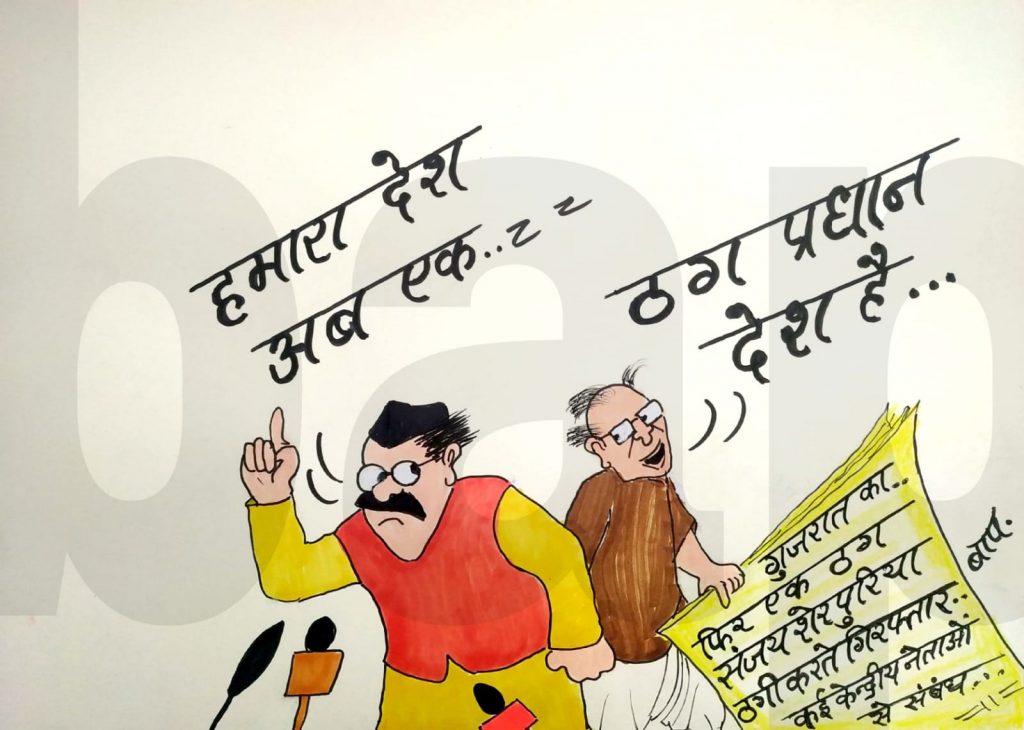 हमारा देश
अब एक..
ठग प्रधान
देश है...
गुजरात का..
फिर एक ठग
संजय शेरपुरिया
ठगी करते गिरफ्तार..
कई केन्द्रीय नेताओं
से संबंध...
बाप.
bap